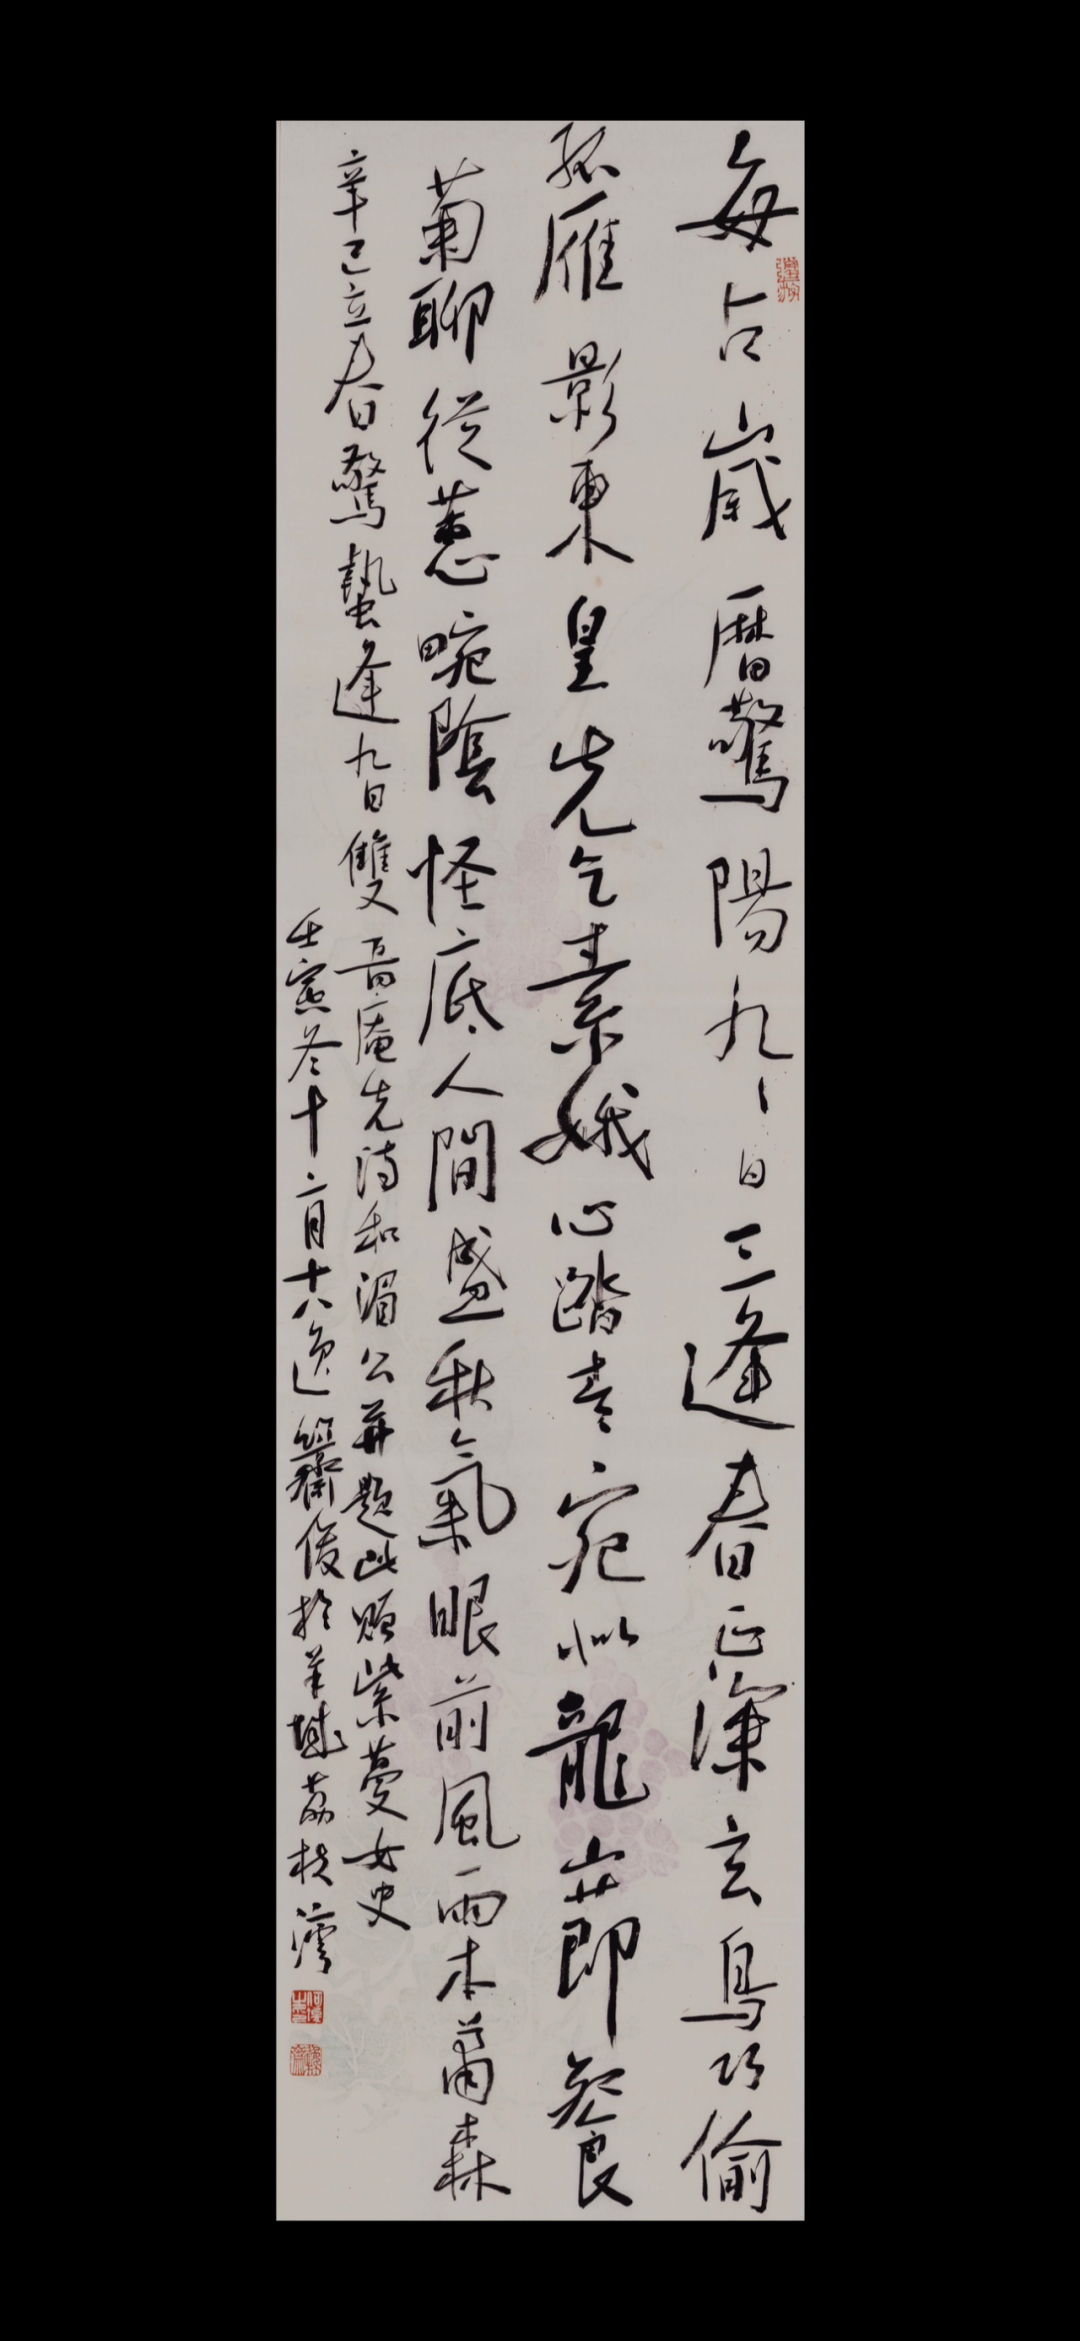 每占歲曆驚陽九九日三逢春正深玄鳥巧偷
孤雁影東皇先乞素娥心踏青宛似龍山節餐
菊聊從蕙畹陰怪底人間盛秋氣眼前風雨本蕭森
辛巳立春驚蟄逢九日雙吾庵先詩和湄公并題此贈紫蔓女史
壬寅冬十二月十六逸簃俊於羊城荔枝灣